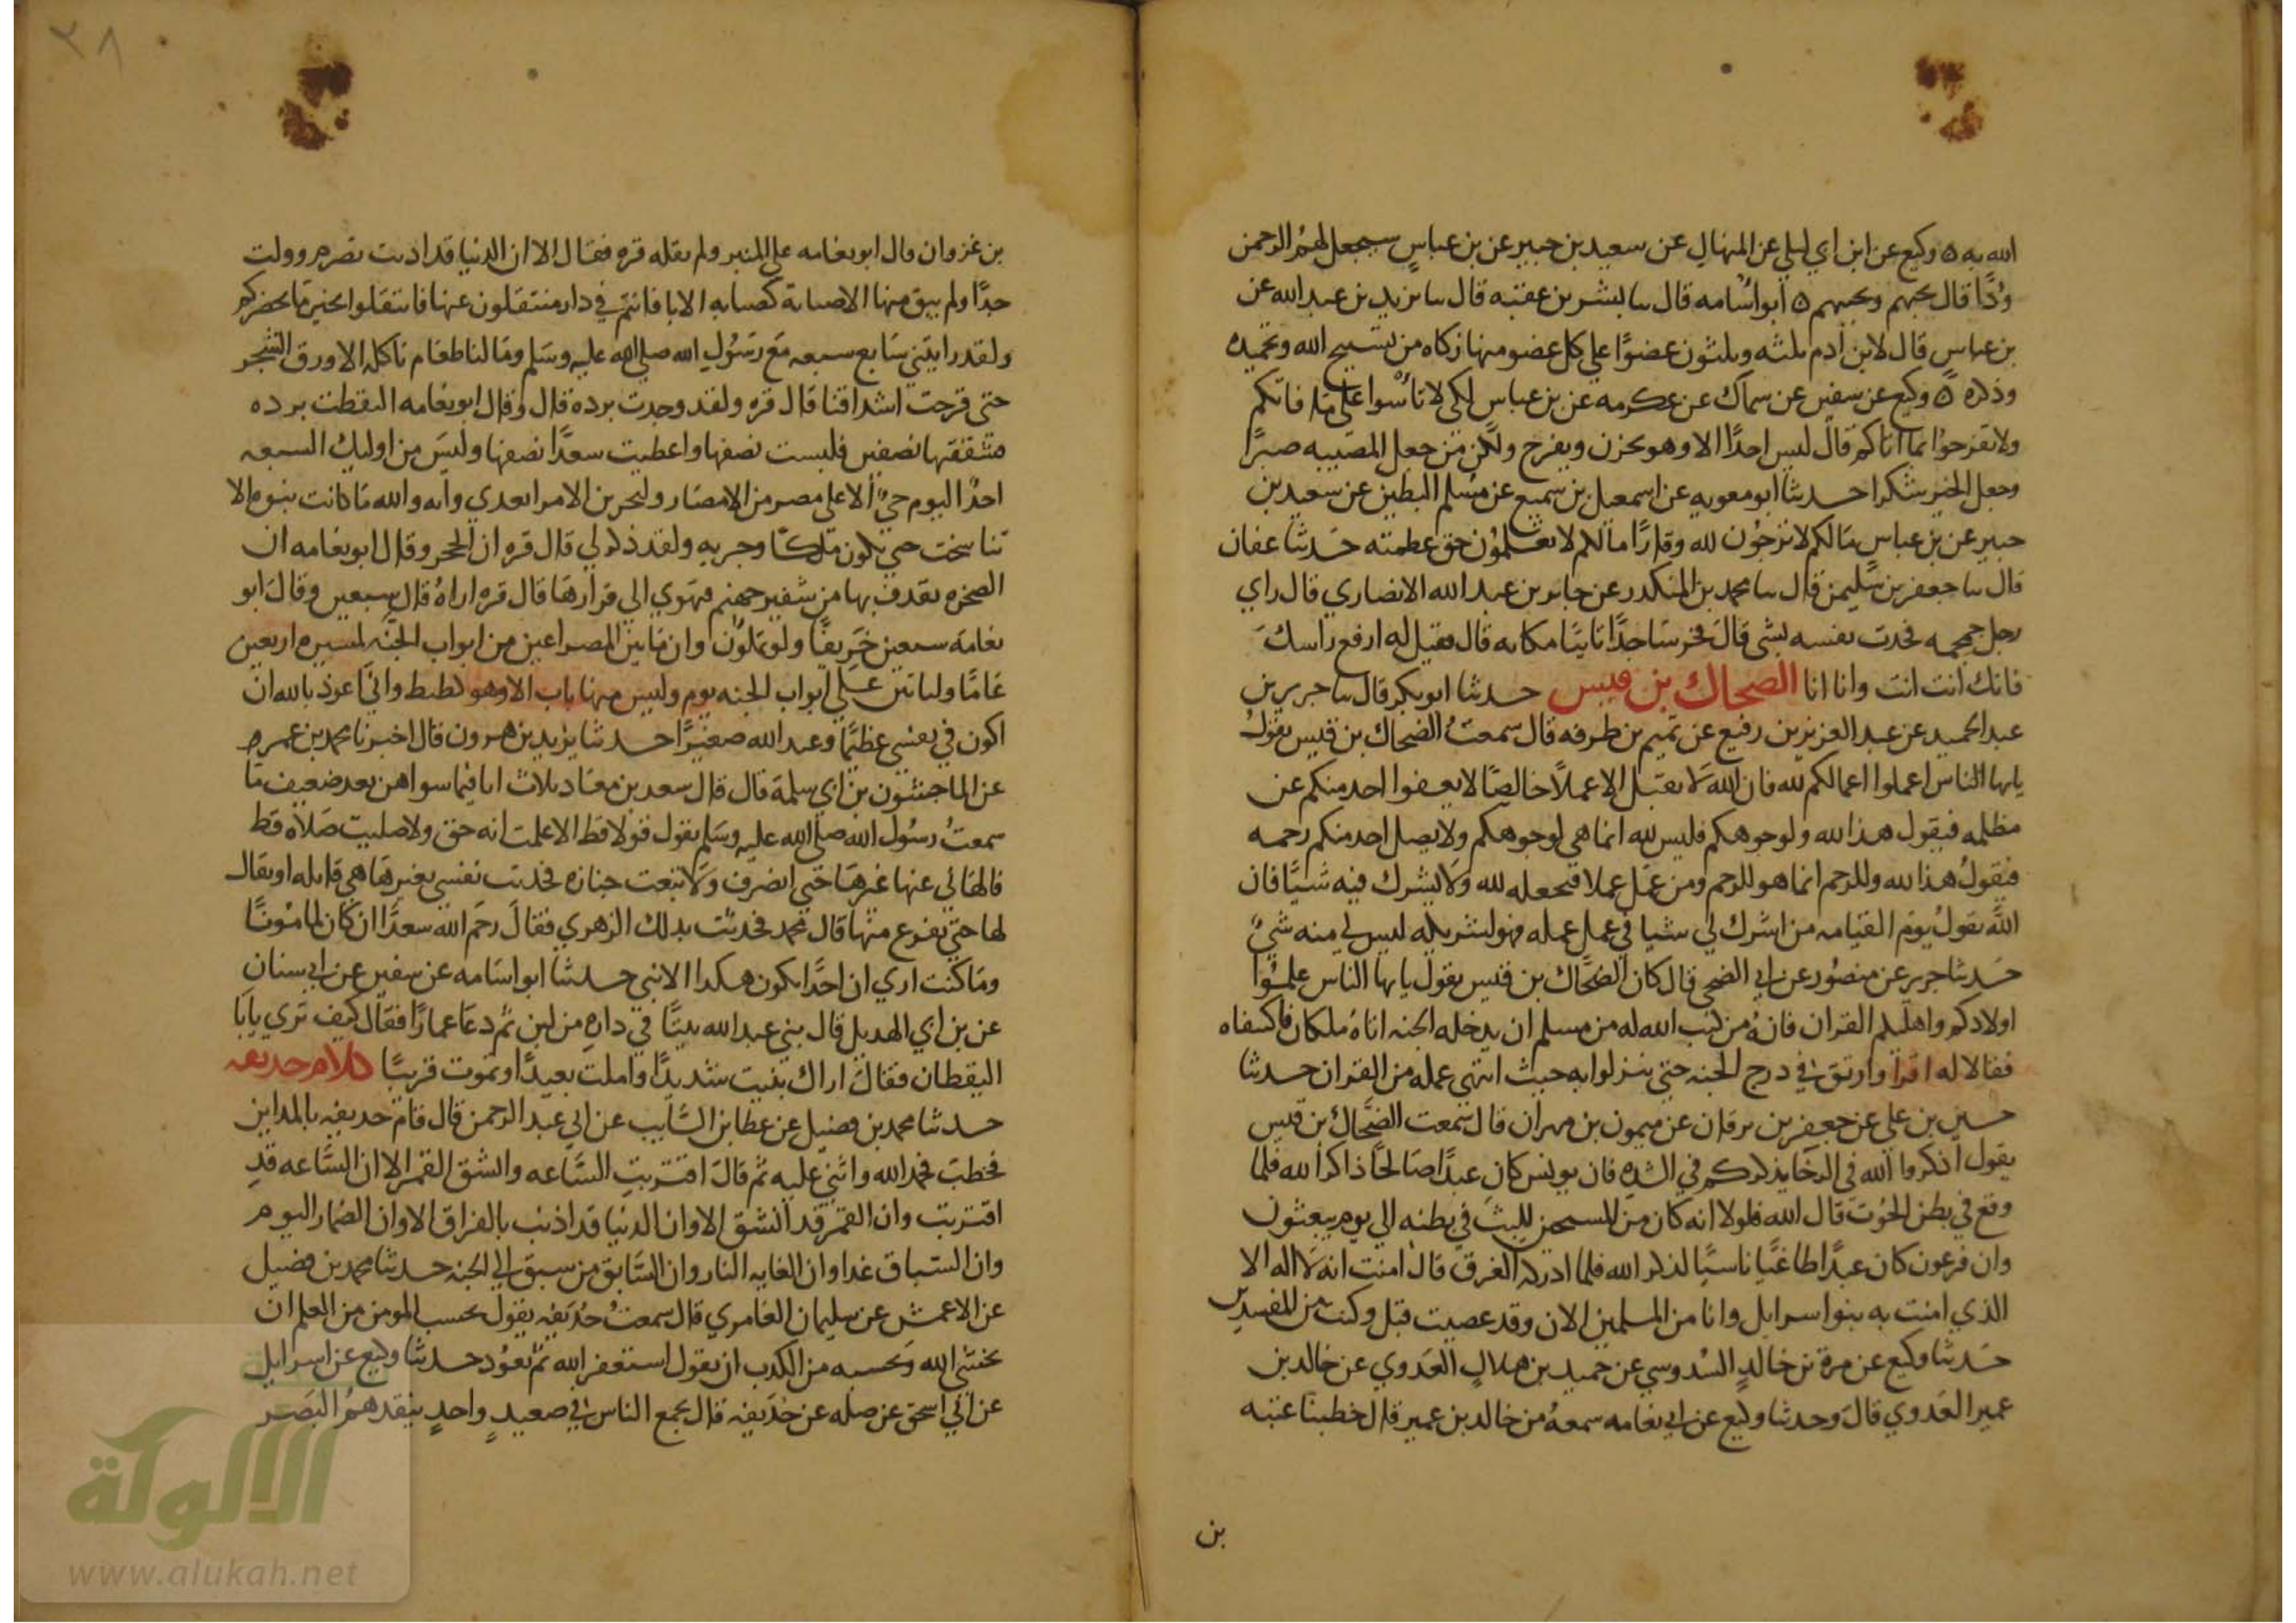 الله به ٥ وكيع عن ابن ابي ليلي عن المنهال عن سعيد بن جبير عن بن عباس سيجعل لهم الرحمن
ودًا قال يحبهم ويحببهم ٥ ابو اسامه قال سا بشر بن عقبه قال سا يزيد بن عبد الله عن
بن عباس قال لابن ادم ثلثه وثلثون عضوًا علي كل عضو منها زكاه من تسبيح الله وتحميده
وذكره ٥ وكيع عن سفين عن سماك عن عكرمه عن بن عباس لكي لا تأسوا على ما فاتكم
ولا تفرحوا بما اتاكم قال ليس احدًا الا وهو يحزن ويفرح ولكن من جعل المصيبه صبرًا
وجعل الخير شكرا حدثنا ابو معويه عن اسمعيل بن سميع عن مسلم البطين عن سعيد بن
جبير عن بن عباس مالكم لا ترجون لله وقارًا ما لكم لا تعلمون حق عظمته حدثنا عفان
قال سا جعفر بن سليمن قال سا محمد بن المنكدر عن جابر بن عبد الله الانصاري قال راي
رجل جمجمه فحدث نفسه بشي قال فخر ساجدًا تايبًا مكانه قال فقيل له ارفع راسك
فانك انت انت وانا انا الضحاك بن قيس حدثنا ابو بكر قال سا جرير بن
عبد الحميد عن عبد العزيز بن رفيع عن تميم بن طرفه قال سمعت الضحاك بن قيس يقول
يايها الناس اعملوا اعمالكم لله فان الله لا يقبل الا عملًا خالصًا لا يعفوا احد منكم عن
مظلمه فيقول هذا لله ولوجوهكم فليس لله انما هي لوجوهكم ولا يصل احد منكم رحمه
فيقول هذا لله وللرحم انما هو للرحم ومن عمل عملا فيجعله لله ولا يشرك فيه شيًا فان
الله يقول يوم القيامه من اشرك لي شيا في عمل عمله فهو لشريكه ليس لي منه شيٌ
حدثنا جرير عن منصور عن ابي الضحي قال كان الضحاك بن قيس يقول يايها الناس علموا
اولادكم واهليكم القران فانه من كتب الله له من مسلم ان يدخله الجنه اتاه ملكان فاكتنفاه
فقالا له اقرا وارتق في درج الجنه حتي ينزلوا به حيث انتهي عمله من القران حدثنا
حسين بن علي عن جعفر بن برقان عن ميمون بن مهران قال سمعت الضحاك بن قيس
يقول اذكروا الله في الرخا يذكركم في الشده فان يونس كان عبدًا صالحًا ذاكرا لله فلما
وقع في بطن الحوت قال الله فلولا انه كان من المسبحين للبث في بطنه الي يوم يبعثون
وان فرعون كان عبدًا طاغيًا ناسيًا لذكر الله فلما ادركه الغرق قال امنت انه لا اله الا
الذي امنت به بنوا اسرايل وانا من المسلمين الان وقد عصيت قبل وكنت من المفسدين
حدثنا وكيع عن مرة بن خالد السدوسي عن حميد بن هلال العدوي عن خالد بن
عمير العدوي قال وحدثنا وكيع عن ابي نعامه سمعه من خالد بن عمير قال خطبنا عتبه
بن
٣٨
بن غزوان قال ابو نعامه على المنبر ولم يقله قره فقال الا ان الدنيا قد اذنت بصرم وولت
حدًا ولم يبق منها الا صبابة كصبابه الانا فانتم في دار منتقلون عنها فانتقلوا بخير ما بحضركم
ولقد رايتني سابع سبعه مع رسول الله صلي الله عليه وسلم ومالنا طعام ناكله الا ورق الشجر
حتي قرحت اشداقنا قال قره ولقد وجدت برده قال وقال ابو نعامه التقطت برده
فشققتها نصفين فلبست نصفها واعطيت سعدًا نصفها وليس من اوليك السبعه
احدٌ اليوم حيٌ الا على مصر من الامصار ولتجربن الامرا بعدي وانه والله ما كانت نبوه الا
تناسخت حتي تكون ملكًا وجبريه ولقد ذكر لي قال قره ان الحجر وقال ابو نعامه ان
الصخره يقذف بها من شفير جهنم فتهوي الي قرارها قال قره اراه قال سبعين وقال ابو
نعامه سبعين خريفًا ولتملون وان ما بين المصراعين من ابواب الجنه لمسيره اربعين
عامًا ولياتين علي ابواب الجنه يوم وليس منها باب الا وهو كظيظ واني اعوذ بالله ان
اكون في نفسي عظيمًا وعند الله صغيرًا حدثنا يزيد بن هرون قال اخبرنا محمد بن عمرو
عن الماجشون بن ابي سلمة قال قال سعد بن معاذ ثلاث انا فيما سواهن بعد ضعيف ما
سمعت رسول الله صلي الله عليه وسلم يقول قولا قط الا علمت انه حق ولا صليت صلاه قط
فالهاني عنها غيرها حتي انصرف ولا تبعت جنازه فحدثت نفسي بغير ما هي قايله او يقال
لها حتي نفرغ منها قال محمد فحدثت بذلك الزهري فقال رحم الله سعدًا ان كان لمامونًا
وما كنت اري ان احدًا يكون هكذا الا نبي حدثنا ابو اسامه عن سفين عن ابي سنان
عن بن ابي الهذيل قال بني عبد الله بيتًا في داره من لبن ثم دعا عمارًا فقال كيف تري يابا
اليقظان فقال اراك بنيت شديدًا واملت بعيدًا وتموت قريبًا كلام حذيفه
حدثنا محمد بن فضيل عن عطا بن السايب عن ابي عبد الرحمن قال قام حذيفه بالمداين
فخطب فحمد الله واثني عليه ثم قال اقتربت الساعه وانشق القمر الا ان الساعه قد
اقتربت وان القمر قد انشق الا وان الدنيا قد اذنت بالفراق الا وان المضمار اليوم
وان السباق غدا وان الغايه النار وان السابق من سبق الي الجنه حدثنا محمد بن فضيل
عن الاعمش عن سليمان العامري قال سمعت حذيفه يقول بحسب المومن من العلم ان
يخشي الله وبحسبه من الكذب ان يقول استغفر الله ثم يعود حدثنا وكيع عن اسرايل
عن ابي اسحق عن صله عن حذيفه قال يجمع الناس في صعيد واحد ينفذهم البصر
الألوكة
www.alukah.net